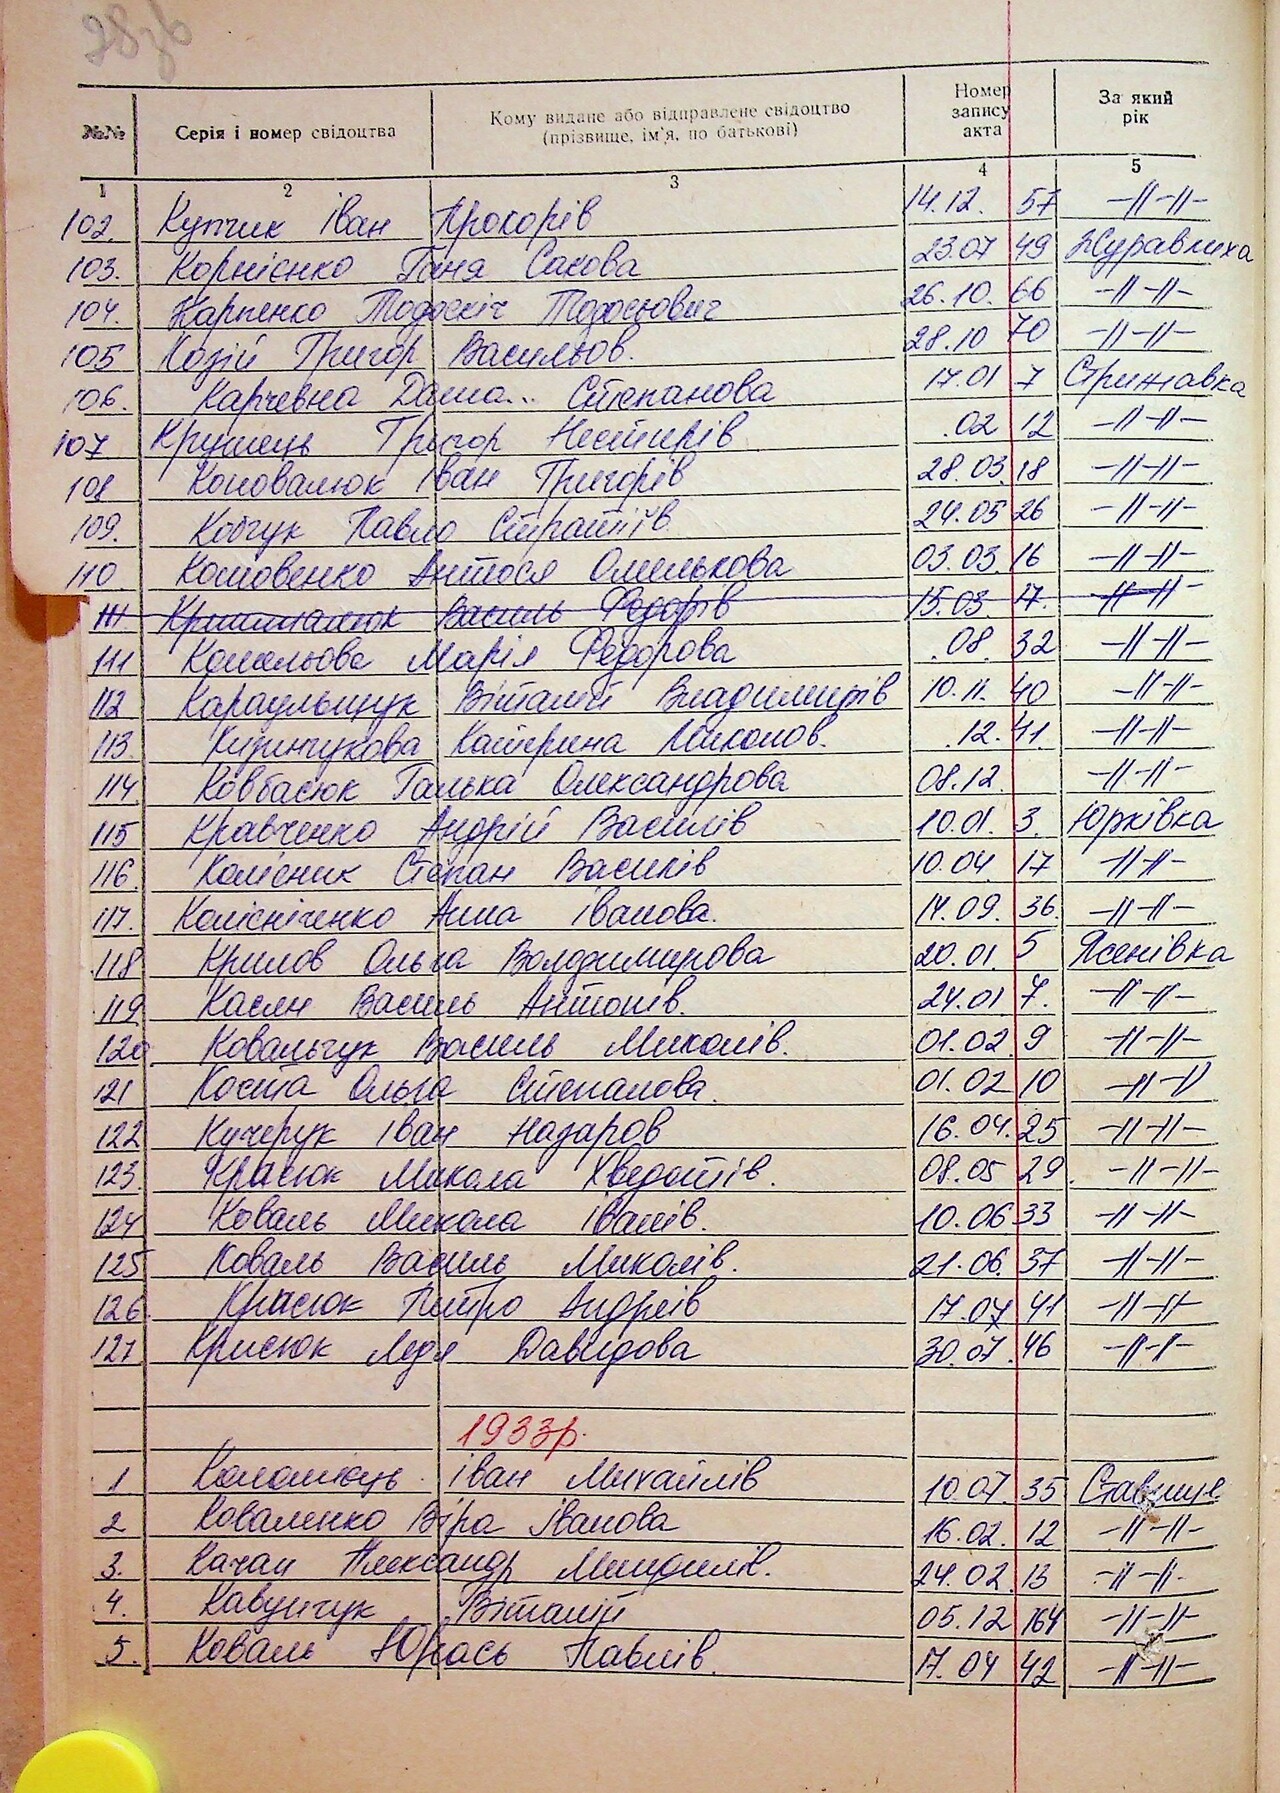 №№ Серія і номер свідоцтва Кому видане або відправлене свідоцтво (прізвище, ім'я, по батькові) Номер запису акта За який рік
1 2 3 4 5
102. Купчик Іван Прокорів 14.12. 57 -//-//-
103. Корнієнко Ганя Сакова 23.07 49 Журавлиха
104. Карпенко Тодосюович 26.10. 66 -//-//-
105 Козій Григор Васильов. 28.10 70 -//-//-
106. Карчевна Даша... Степанова 17.01 7 Стрижавка
107 Григор Несторів .02 12 -//-//-
108 Коновалюк Іван Григорів 28.03. 18 -//-//-
109. Кобчук Павло 24.05 26 -//-//-
110 Костовенко Антося Омелькова 03.03. 16 -//-//-
111 Кришталюк Василь Федорів 15.03 17. -//-//-
111 Ковальова Марія Федорова .08. 32 -//-//-
112 Караульщук Віталій Владимирів 10.11. 40 -//-//-
113. Катерина Миколов. .12. 41. -//-//-
114. Ковбасюк Галька Олександрова 08.12. -//-//-
115 Кравченко Андрій Василів 10.01. 3. Юрківка
116. Колісник Степан Василів 10.04. 17 -//-//-
117. Колісніченко Анна Іванова. 14.09. 36. -//-//-
118 Крилов Ольга Володимирова 20.01. 5 Ясенівка
119 Касян Василь Антонів. 24.01 7. -//-//-
120 Ковальчук Василь Миколів. 01.02. 9 -//-//-
121 Коста Ольга Степанова. 01.02 10 -//-//-
122 Кучерук Іван Назаров 16.04. 25 -//-//-
123. Красюк Микола Хведотів. 08.05 29. -//-//-
124 Коваль Микола Іванів. 10.06 33 -//-//-
125 Коваль Василь Миколів. 21.06. 37 -//-//-
126. Красюк Петро Андреів 17.07 41 -//-//-
127 Крисюк Ледя Давидова 30.07. 46 -//-//-
1933р.
1 Коломієць Іван Михайлів 10.07. 35 Ставище
2 Коваленко Віра Іванова 16.02. 12 -//-//-
3. Качан Александр 24.02. 13 -//-//-
4. Кавунчук Віталій 05.12 164 -//-//-
5. Коваль Юрась Павлів. 17.04 42 -//-//-